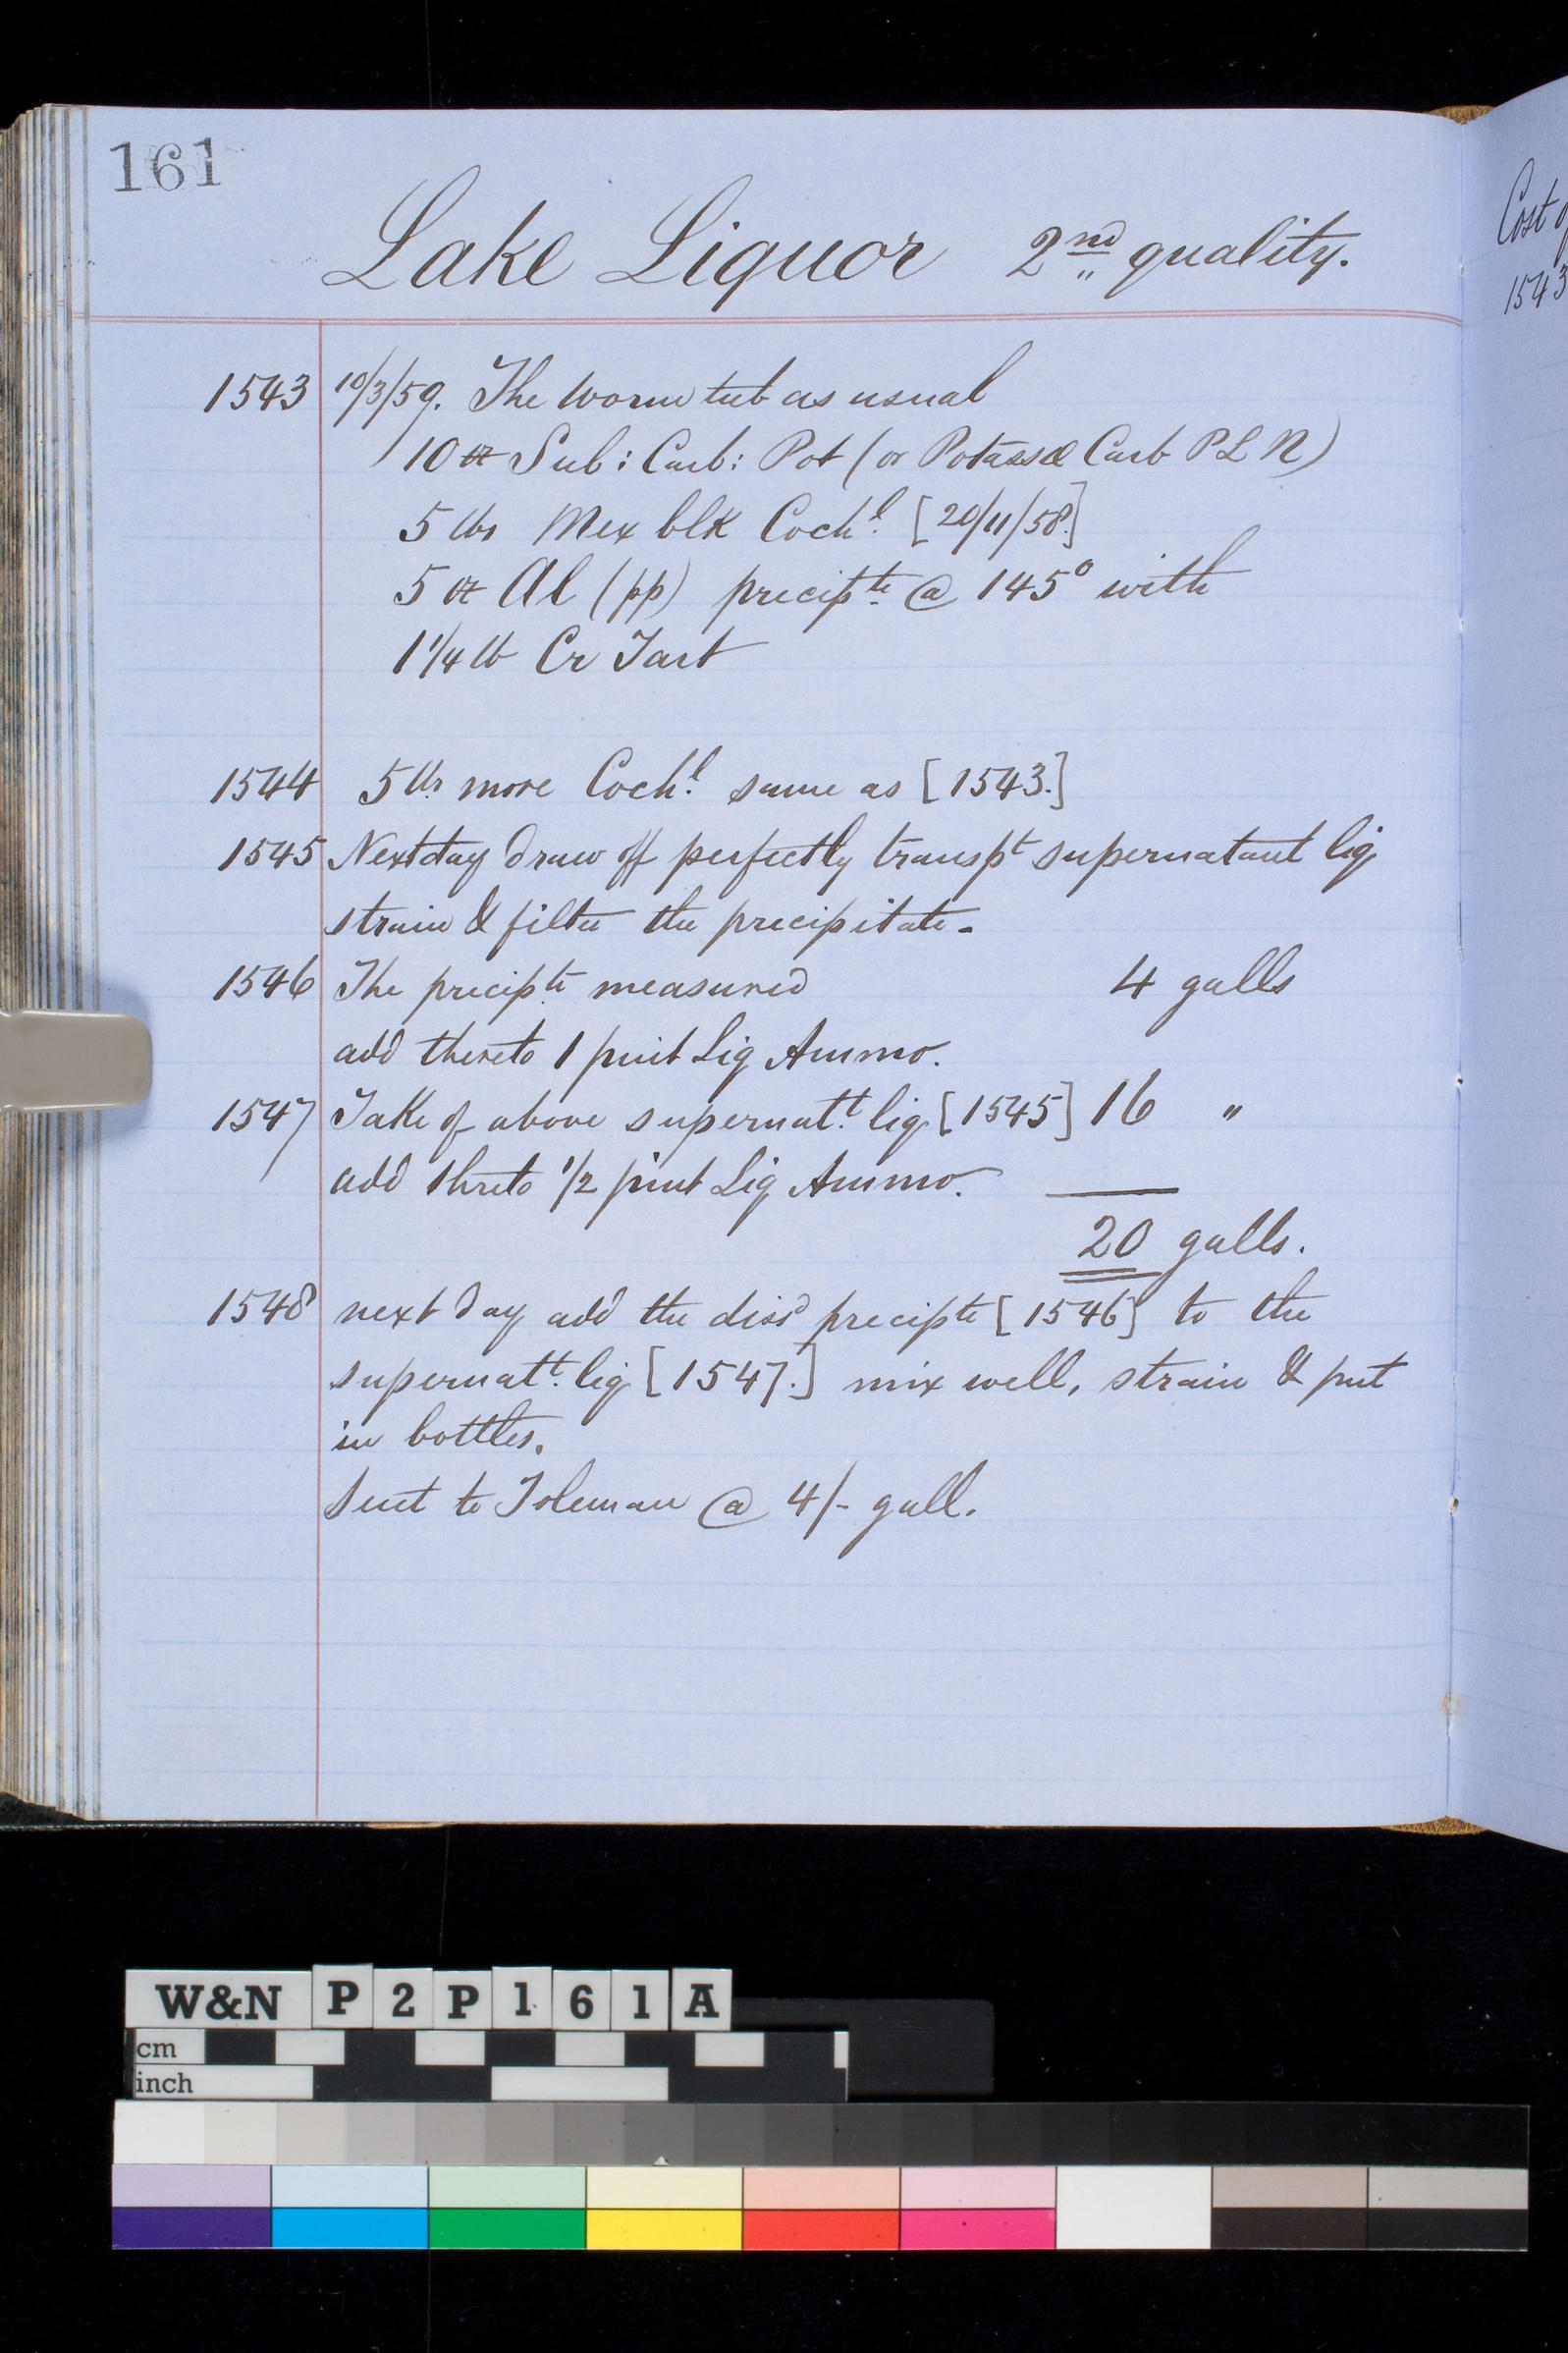 161
Lake Liquor 2nd quality.
1543 10/3/59. The Worm tub as usual
10 oz Sub: Carb: Pot (or Potassæ Carb P L N)
5 lbs Mex blk Cochl. [20/11/58.]
5 oz Al (pp) precipte. @ 145° with
1 1/4 lb Cr Tart
1544 5 lbs more Cochl. same as [1543.]
1545 Next day draw off perfectly transpt supernatant liq
strain & filter the precipitate.
1546 The precipte measured 4 galls
add thereto 1 pint Liq Ammo.
1547 Take of above supernatt. liq [1545] 16 "
add thereto 1/2 pint Liq Ammo.
20 galls.
1548 next day add the dissd precipte [1546] to the
supernatt. liq [1547.] mix well, strain & put
in bottles.
Sent to Toleman @ 4/- gall.
Cost
1543
W&N P2P161A
cm
inch